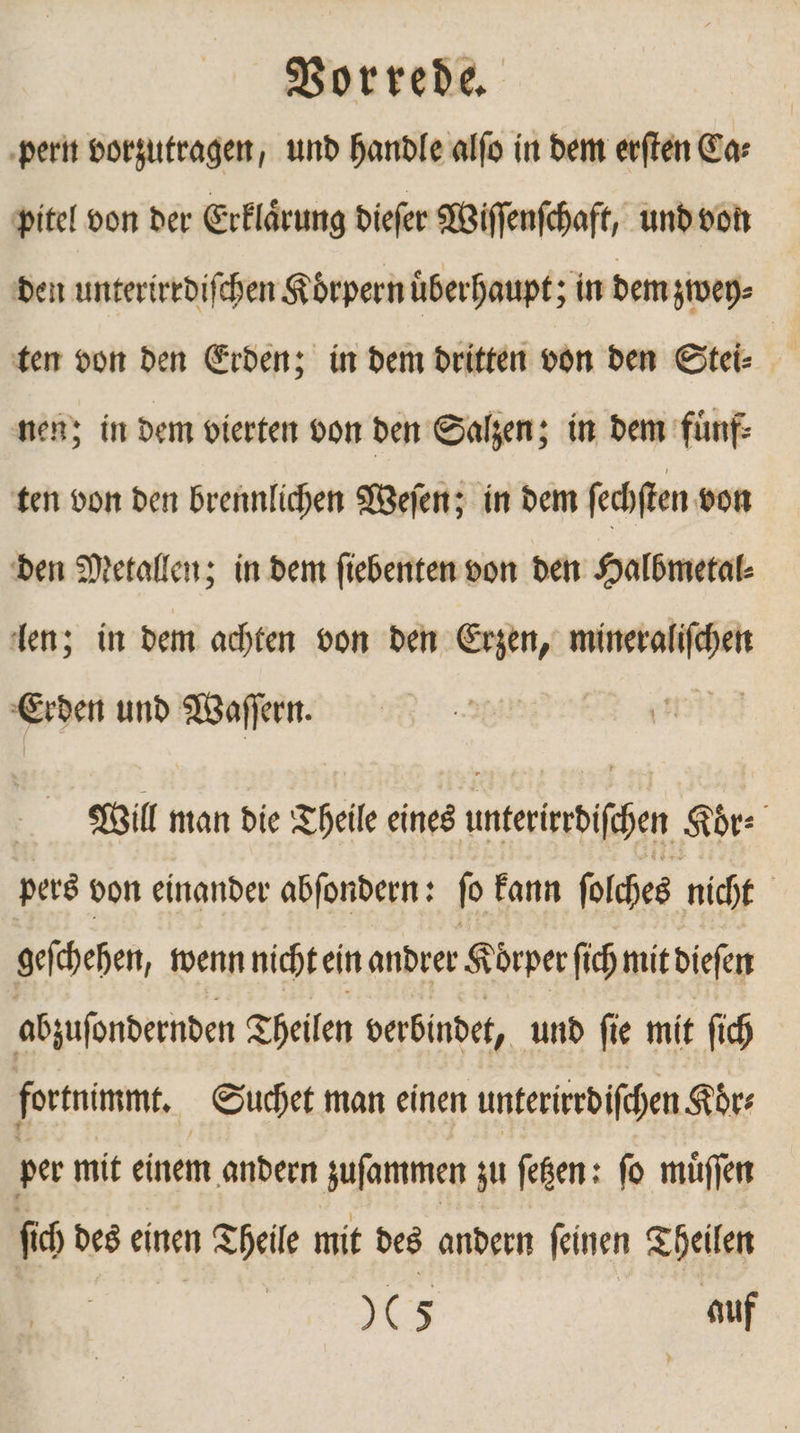 Vorrede.
pern vorzutragen, und handle alſo in dem erſten Ca⸗
pitel von der Erklaͤrung dieſer Wiſſenſchaft, und von
den unterirrdiſchen Koͤrpern uͤberhaupt; in dem zwey⸗
ten von den Erden; in dem dritten von den Stei⸗
nen; in dem vierten von den Salzen; in dem fuͤnf⸗
ten von den brennlichen Weſen; in dem ſechſten von
den Metallen; in dem ſiebenten von den Halbmetal⸗
len; in dem achten von den Erzen, mineraliſchen
Erden und Waſſern.
Will man die Theile eines unterirrdiſchen Koͤr⸗
pers von einander abſondern: ſo kann ſolches nicht
geſchehen, wenn nicht ein andrer Koͤrper ſich mit dieſen
abzuſondernden Theilen verbindet, und ſie mit ſich
fortnimmt. Suchet man einen unterirrdiſchen Koͤr⸗
per mit einem andern zuſammen zu ſetzen: ſo muͤſſen
ſich des einen Theile mit des andern ſeinen Theilen
)( 5 auf